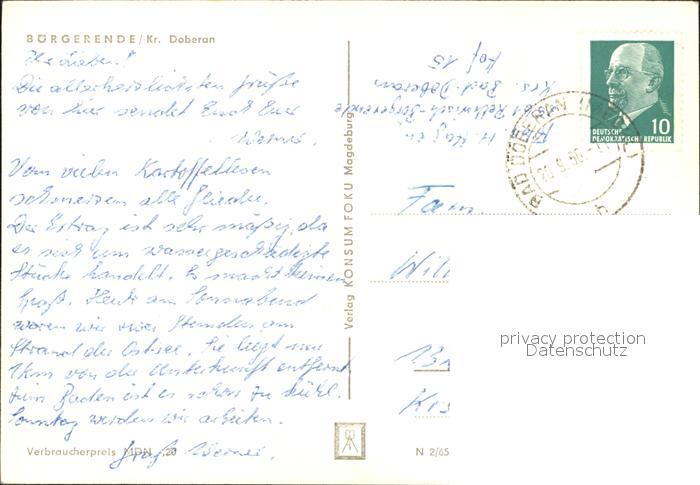 BÖRGERENDE/Kr. Doberan
Ihr Lieben!
Die allerherzlichsten Grüße
von hier sendet Euch Euer
Werner.
Vom vielen Kartoffellesen
schmerzen alle Glieder.
Der Ertrag ist sehr mäßig, da
es sich um wassergeschädigte
Stücke handelt. Es macht keinen
Spaß. Heute am Sonnabend
waren wir zwei Stunden am
Strand der Ostsee. Sie liegt nur
1km von der Unterkunft entfernt.
Zum Baden ist es schon zu kühl.
Sonntag werden wir arbeiten.
Gruß Werner.
Verbraucherpreis MDN -,20
Verlag KONSUM FOKU Magdeburg
Rethwisch-Börgerende
Krs. Bad-Doberan
Hof 15
DEUTSCHE
DEMOKRATISCHE REPUBLIK
10
BAD DOBERAN
20.9.66
Fam.
Will
Krs
N 2/65
privacy protection
Datenschutz